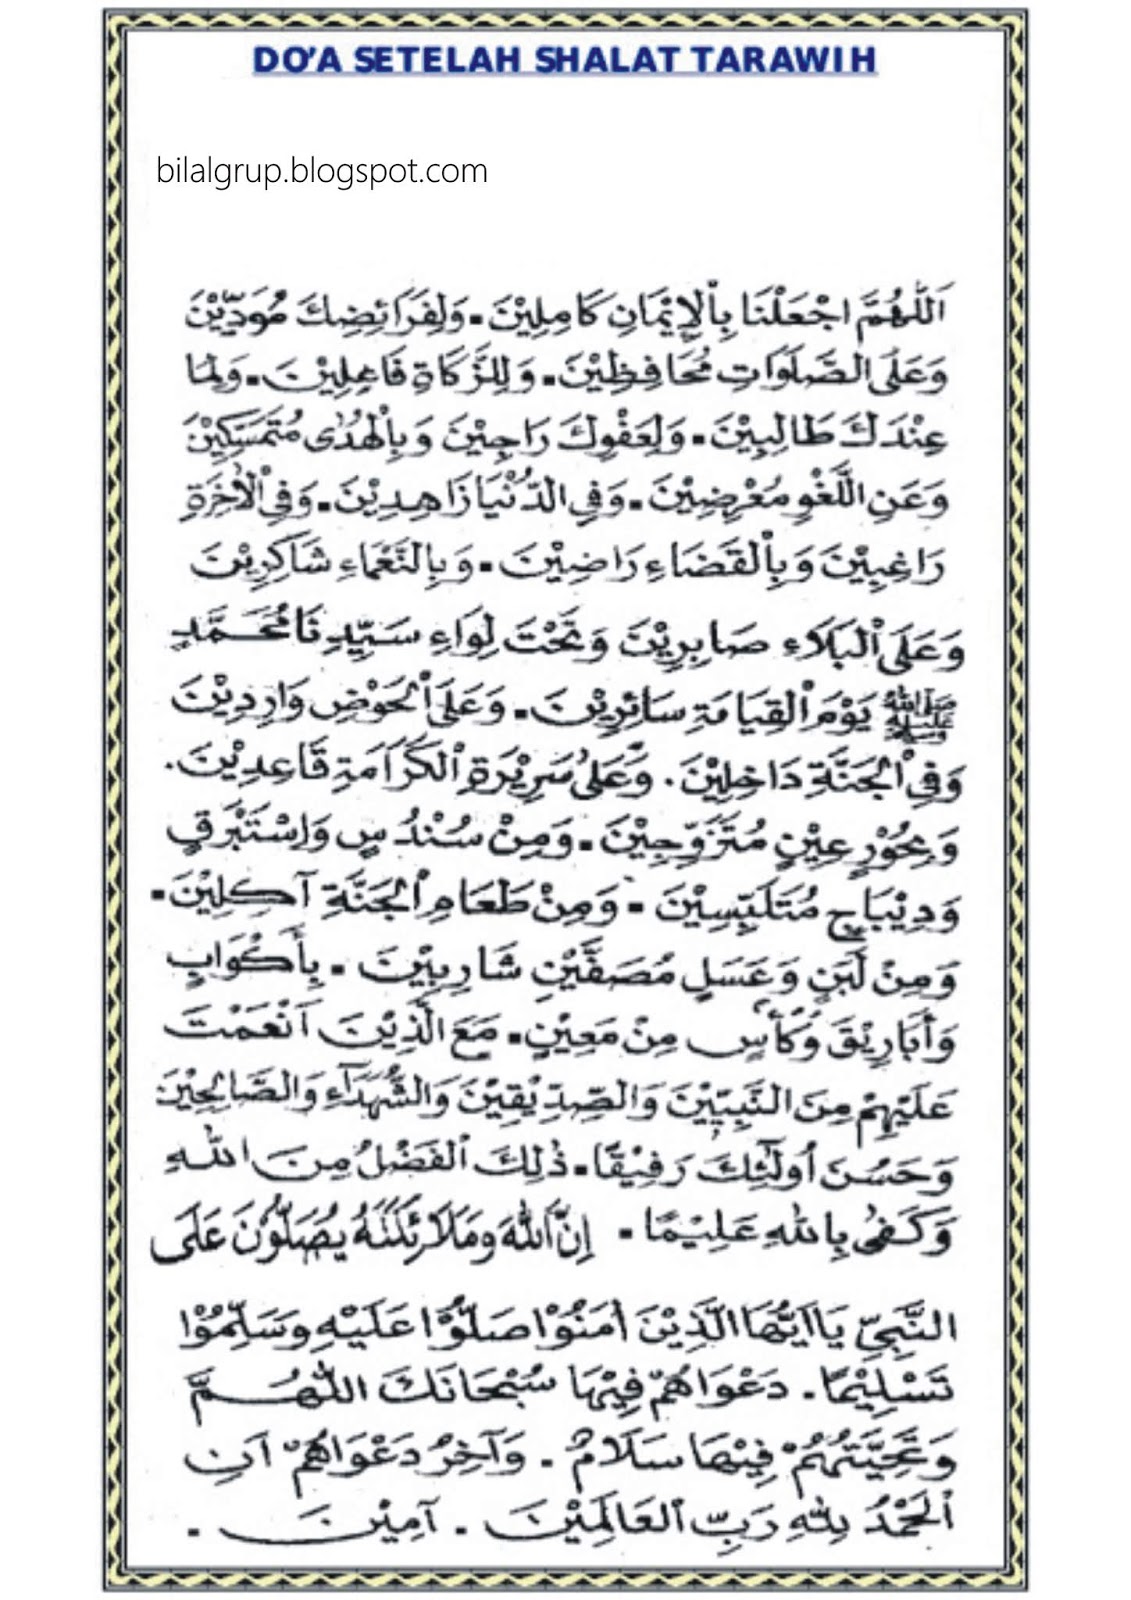 DO'A SETELAH SHALAT TARAWIH
bilalgrup.blogspot.com
اَللّٰهُمَّ اجْعَلْنَا بِاْلإِيْمَانِ كَامِلِيْنَ. وَلِفَرَائِضِكَ مُؤَدِّيْنَ
وَعَلَى الصَّلَوَاتِ مُحَافِظِيْنَ. وَلِلزَّكَاةِ فَاعِلِيْنَ. وَلِمَا
عِنْدَكَ طَالِبِيْنَ. وَلِعَفْوِكَ رَاجِيْنَ وَبِالْهُدٰى مُتَمَسِّكِيْنَ
وَعَنِ اللَّغْوِ مُعْرِضِيْنَ. وَفِي الدُّنْيَا زَاهِدِيْنَ. وَفِي اْلاٰخِرَةِ
رَاغِبِيْنَ وَبِالْقَضَاءِ رَاضِيْنَ. وَبِالنَّعْمَاءِ شَاكِرِيْنَ
وَعَلَى الْبَلَاءِ صَابِرِيْنَ وَتَحْتَ لِوَاءِ سَيِّدِنَا مُحَمَّدٍ
ﷺ يَوْمَ الْقِيَامَةِ سَائِرِيْنَ. وَعَلَى الْحَوْضِ وَارِدِيْنَ
وَفِي الْجَنَّةِ دَاخِلِيْنَ. وَعَلَى سَرِيْرَةِ الْكَرَامَةِ قَاعِدِيْنَ.
وَبِحُوْرٍ عِيْنٍ مُتَزَوِّجِيْنَ. وَمِنْ سُنْدُسٍ وَاِسْتَبْرَقٍ
وَدِيْبَاجٍ مُتَلَبِّسِيْنَ. وَمِنْ طَعَامِ الْجَنَّةِ آكِلِيْنَ.
وَمِنْ لَبَنٍ وَعَسَلٍ مُصَفَّيْنِ شَارِبِيْنَ. بِأَكْوَابٍ
وَأَبَارِيْقَ وَكَأْسٍ مِنْ مَعِيْنٍ. مَعَ الَّذِيْنَ اَنْعَمْتَ
عَلَيْهِمْ مِنَ النَّبِيِّيْنَ وَالصِّدِّيْقِيْنَ وَالشُّهَدَآءِ وَالصَّالِحِيْنَ
وَحَسُنَ اُولٰئِكَ رَفِيْقًا. ذٰلِكَ الْفَضْلُ مِنَ اللّٰهِ
وَكَفٰى بِاللّٰهِ عَلِيْمًا. إِنَّ اللّٰهَ وَمَلَائِكَتَهُ يُصَلُّوْنَ عَلَى
النَّبِيِّ يَا اَيُّهَا الَّذِيْنَ اٰمَنُوْا صَلُّوْا عَلَيْهِ وَسَلِّمُوْا
تَسْلِيْمًا. دَعْوَاهُمْ فِيْهَا سُبْحَانَكَ اللّٰهُمَّ
وَتَحِيَّتُهُمْ فِيْهَا سَلَامٌ. وَآخِرُ دَعْوَاهُمْ اَنِ
الْحَمْدُ لِلّٰهِ رَبِّ الْعَالَمِيْنَ. آمِيْنَ.